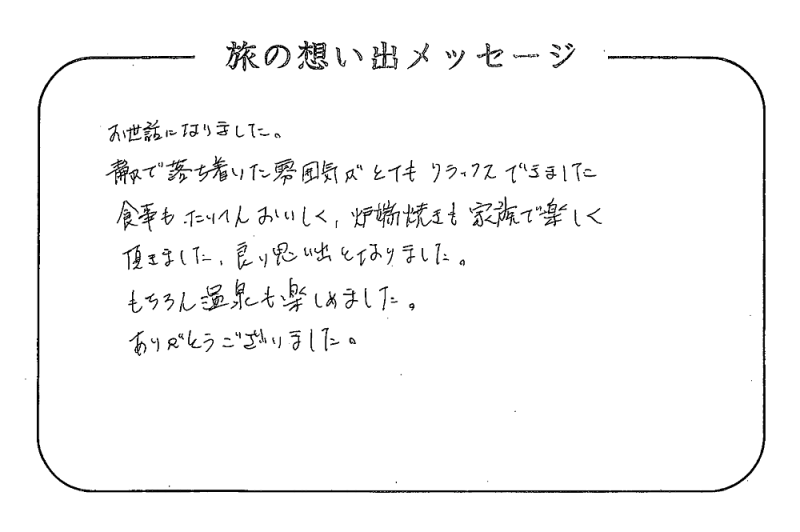 旅の想い出メッセージ
お世話になりました。
静かで落ち着いた雰囲気がとてもリラックスできました
食事もたいへんおいしく、炉端焼きも家族で楽しく
頂きました、良い思い出となりました。
もちろん温泉も楽しめました。
ありがとうございました。